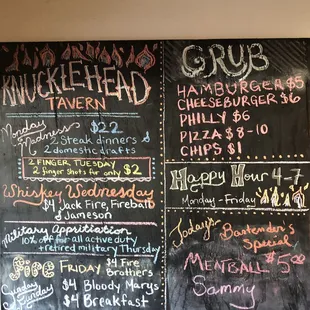 KNUCKLEHEAD
TAVERN
Monday $22
Madness 2 Steak dinners
2 domestic drafts
2 FINGER TUESDAY
2 finger Shots for only $2
Whiskey Wednesday
$4 Jack Fire, Fireball
& Jameson
Military Appritiation
10% off for all active duty
+ retired military Thursday
Fire Friday $4 Fire
Brothers
Sunday $4 Bloody Marys
Funday $4 Breakfast
GRUB
HAMBURGER $5
CHEESEBURGER $6
PHILLY $6
PIZZA $8-10
CHIPS $1
Happy Hour 4-7
Monday - Friday
Today's Bartender's
Special
MEATBALL $5.00
Sammy